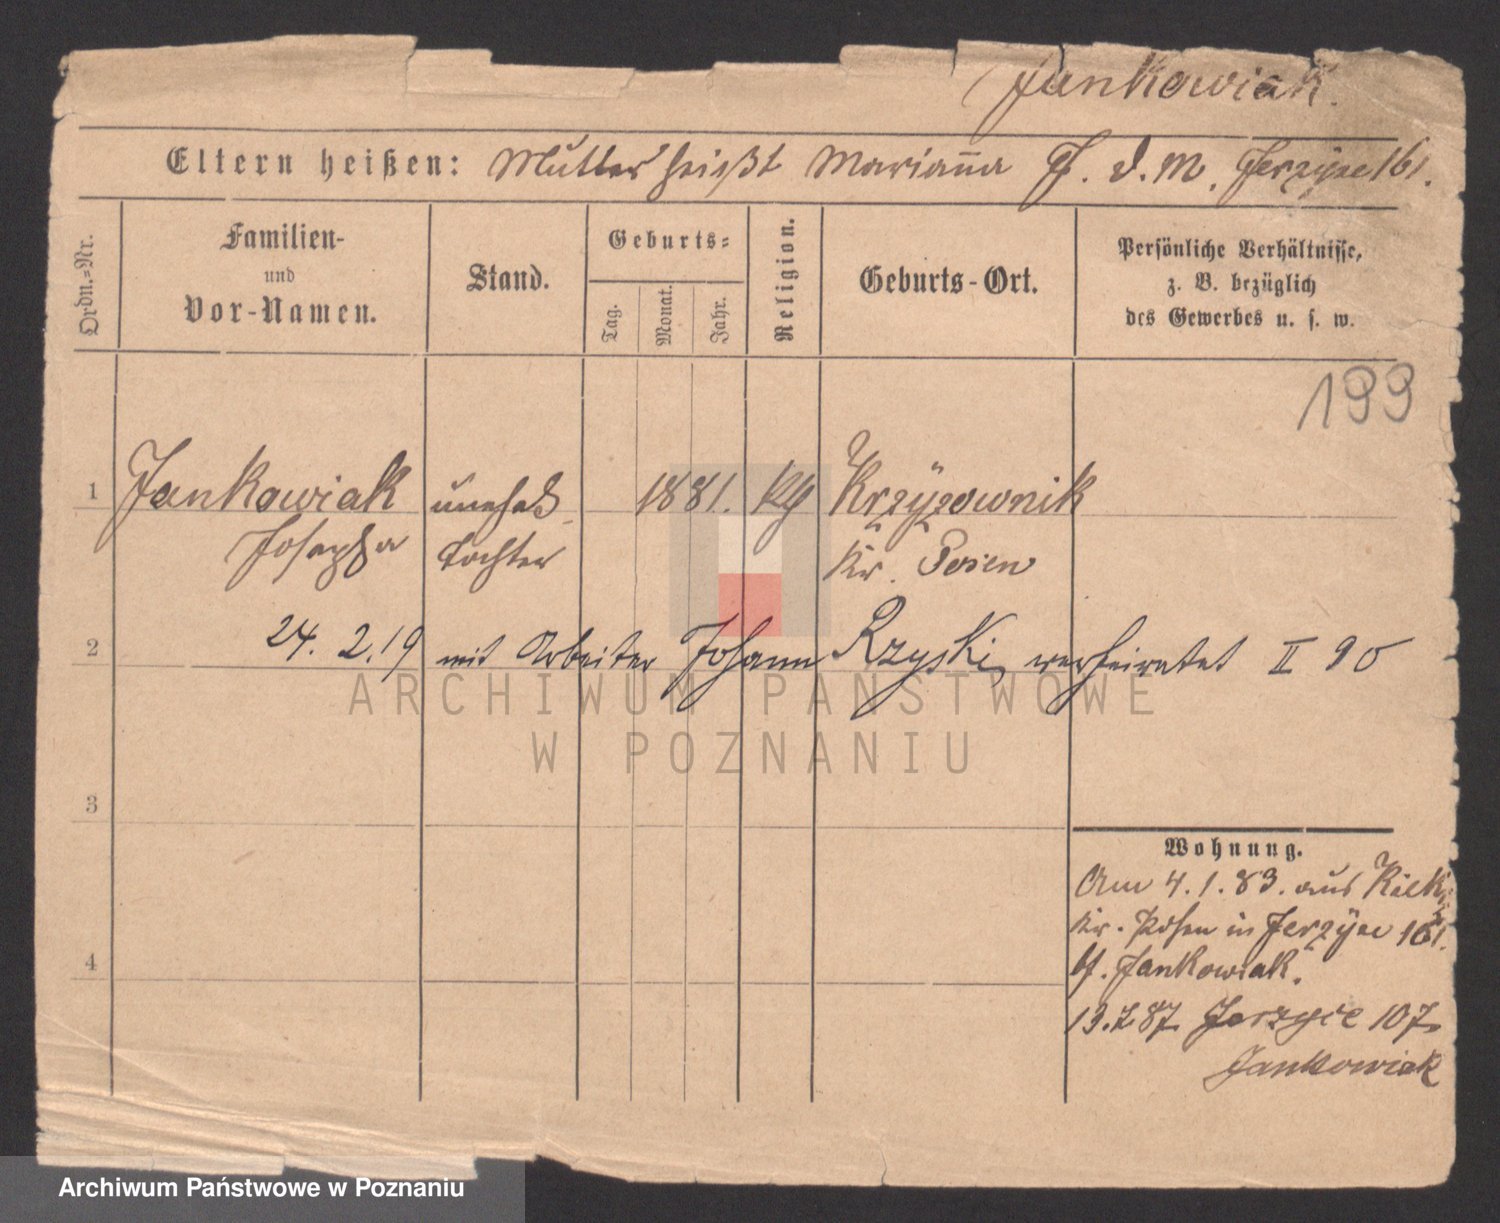 Jankowiak.
Eltern heißen: Mutter heißt Marianna F. d. M. Jerzyce 161.
Ordn.=Nr.
Familien-
und
Vor-Namen.
Stand.
Geburts=
Tag.
Monat.
Jahr.
Religion.
Geburts-Ort.
Persönliche Verhältnisse,
z. B. bezüglich
des Gewerbes u. s. w.
199
1 Jankowiak unehel. 1881. kth Krzyżownik
Josepha tochter Kr. Posen
2 24. 2. 19 mit Arbeiter Johann Rzyski verheiratet II 90
ARCHIWUM PAŃSTWOWE
W POZNANIU
3
Wohnung.
Am 4. 1. 83. aus
Kr. Posen in Jerzyce 161.
b/. Jankowiak.
4
13. 7. 87. Jerzyce 107
Jankowiak
Archiwum Państwowe w Poznaniu